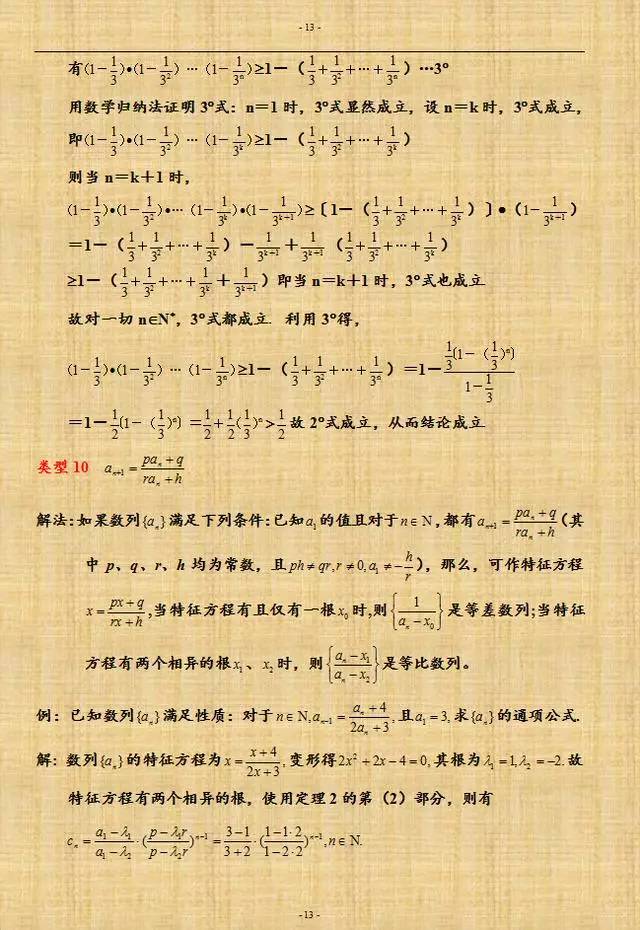 - 13 -
有(1－1/3)•(1－1/3²) … (1－1/3ⁿ)≥1－（1/3＋1/3²＋…＋1/3ⁿ）…3°
用数学归纳法证明3°式：n＝1时，3°式显然成立，设n＝k时，3°式成立，
即(1－1/3)•(1－1/3²) … (1－1/3ᵏ)≥1－（1/3＋1/3²＋…＋1/3ᵏ）
则当n＝k＋1时，
(1－1/3)•(1－1/3²)•… (1－1/3ᵏ)•(1－1/3ᵏ⁺¹)≥〔1－（1/3＋1/3²＋…＋1/3ᵏ）〕•（1－1/3ᵏ⁺¹）
＝1－（1/3＋1/3²＋…＋1/3ᵏ）－1/3ᵏ⁺¹＋1/3ᵏ⁺¹（1/3＋1/3²＋…＋1/3ᵏ）
≥1－（1/3＋1/3²＋…＋1/3ᵏ＋1/3ᵏ⁺¹）即当n＝k＋1时，3°式也成立
故对一切n∈N*，3°式都成立. 利用3°得，
(1－1/3)•(1－1/3²) … (1－1/3ⁿ)≥1－（1/3＋1/3²＋…＋1/3ⁿ）＝1－(1/3〔1－（1/3)ⁿ〕)/(1－1/3)
＝1－1/2〔1－（1/3)ⁿ〕＝1/2＋1/2(1/3)ⁿ>1/2故2°式成立，从而结论成立
类型10 aₙ₊₁=(paₙ+q)/(raₙ+h)
解法：如果数列{aₙ}满足下列条件：已知a₁的值且对于n∈N，都有aₙ₊₁=(paₙ+q)/(raₙ+h)（其
中p、q、r、h均为常数，且ph≠qr,r≠0,a₁≠-h/r），那么，可作特征方程
x=(px+q)/(rx+h),当特征方程有且仅有一根x₀时,则{1/(aₙ-x₀)}是等差数列;当特征
方程有两个相异的根x₁、x₂时，则{(aₙ-x₁)/(aₙ-x₂)}是等比数列。
例：已知数列{aₙ}满足性质：对于n∈N,aₙ₋₁=(aₙ+4)/(2aₙ+3),且a₁=3,求{aₙ}的通项公式.
解：数列{aₙ}的特征方程为x=(x+4)/(2x+3),变形得2x²+2x-4=0,其根为λ₁=1,λ₂=-2.故
特征方程有两个相异的根，使用定理2的第（2）部分，则有
cₙ=(a₁-λ₁)/(a₁-λ₂)·((p-λ₁r)/(p-λ₂r))ⁿ⁻¹=(3-1)/(3+2)·((1-1·2)/(1-2·2))ⁿ⁻¹,n∈N.
- 13 -